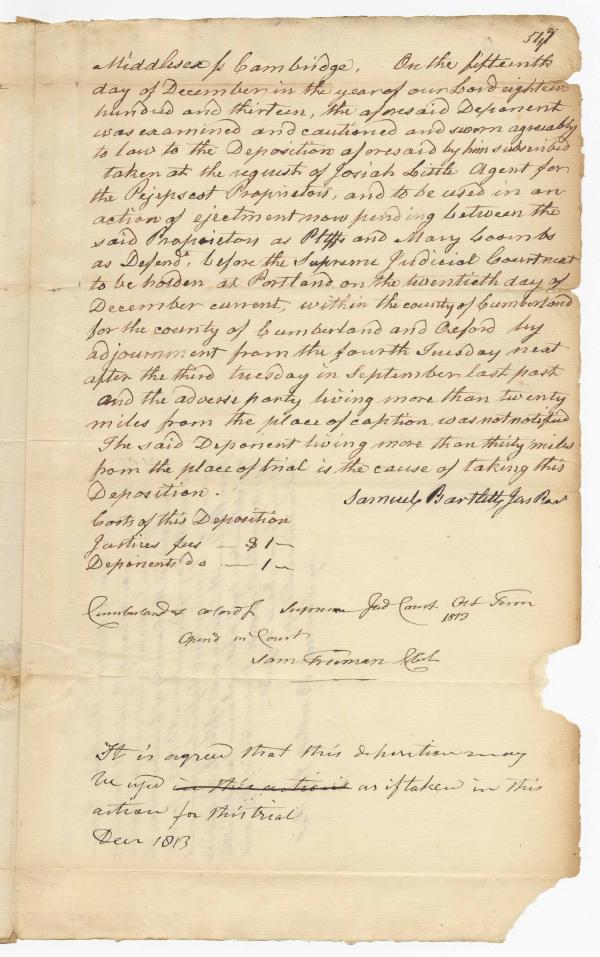 547
Middlesex ss Cambridge. On the fifteenth
day of December in the year of our Lord eighteen
hundred and thirteen, the aforesaid Deponent
was examined and cautioned and sworn agreeably
to law to the Deposition aforesaid by him subscribed
taken at the request of Josiah Little Agent for
the Pejepscot Proprietors, and to be used in an
action of ejectment now pending between the
said Proprietors as Pltffs and Mary Coombs
as Defendt. before the Supreme Judicial Court next
to be holden at Portland on the twentieth day of
December current, within the county of Cumberland
for the county of Cumberland and Oxford by
adjournment from the fourth Tuesday next
after the third tuesday in September last past
and the adverse party living more than twenty
miles from the place of caption was not notified
The said Deponent living more than thirty miles
from the place of trial is the cause of taking this
Deposition.
Samuel Bartlett Jus Pac
Costs of this Deposition
Justices fees — $1—
Deponents do — 1—
Cumberland & Oxford ss Supreme Jud Court Oct Term
1813
Opend in Court
Sam Freeman Clerk
It is agreed that this deposition may
be used in this action as if taken in this
action for this trial
Decr 1813